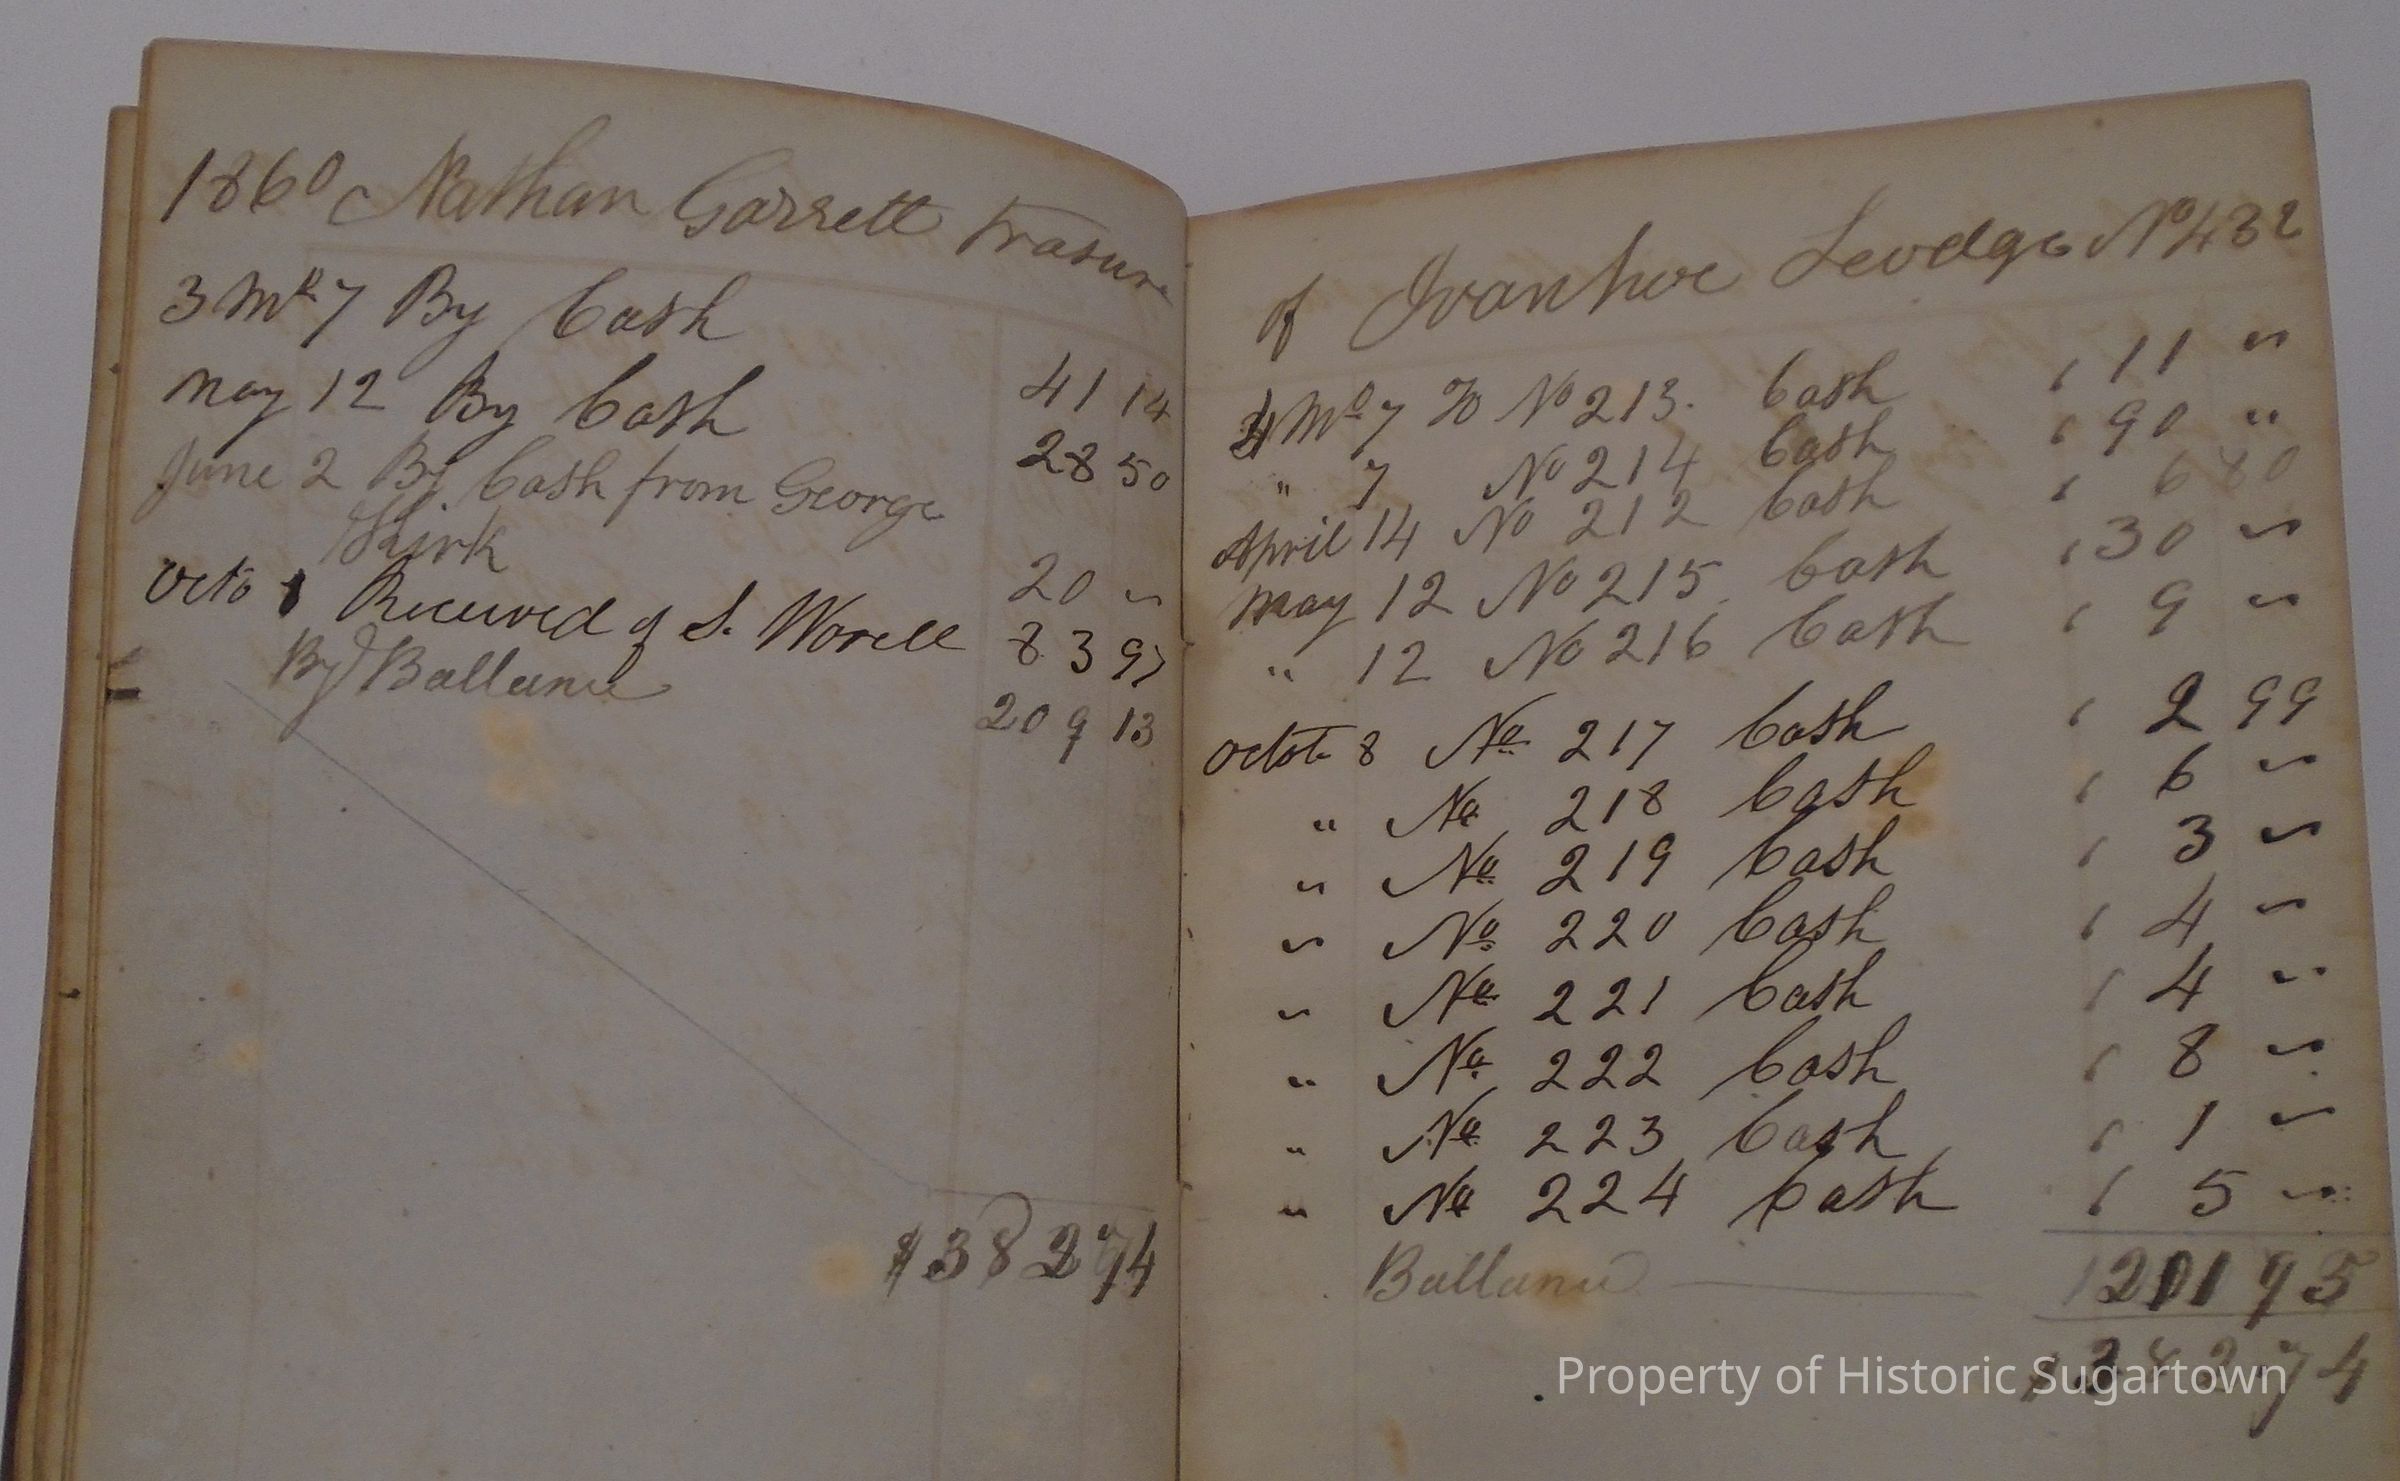 1860 Nathan Garrett Trasure
3 Mo 7 By Cash 41 14
may 12 By Cash 28 50
June 2 By Cash from George
Kirk 20 "
Octo 1 Received of S. Worell 83 97
By Ballance 209 13
$382 74
of Ivanhoe Leodge No 432
4 Mo 7 To No 213. Cash 11 "
" 7 No 214 Cash 90 "
April 14 No 212 Cash 6 80
May 12 No 215 Cash 30 "
" 12 No 216 Cash 9 "
octob 8 No 217 Cash 2 99
" No 218 Cash 6 "
" No 219 Cash 3 "
" No 220 Cash 4 "
" No 221 Cash 4 "
" No 222 Cash 8 "
" No 223 Cash 1 "
" No 224 Cash 5 "
Ballance 95
$382 74
Property of Historic Sugartown